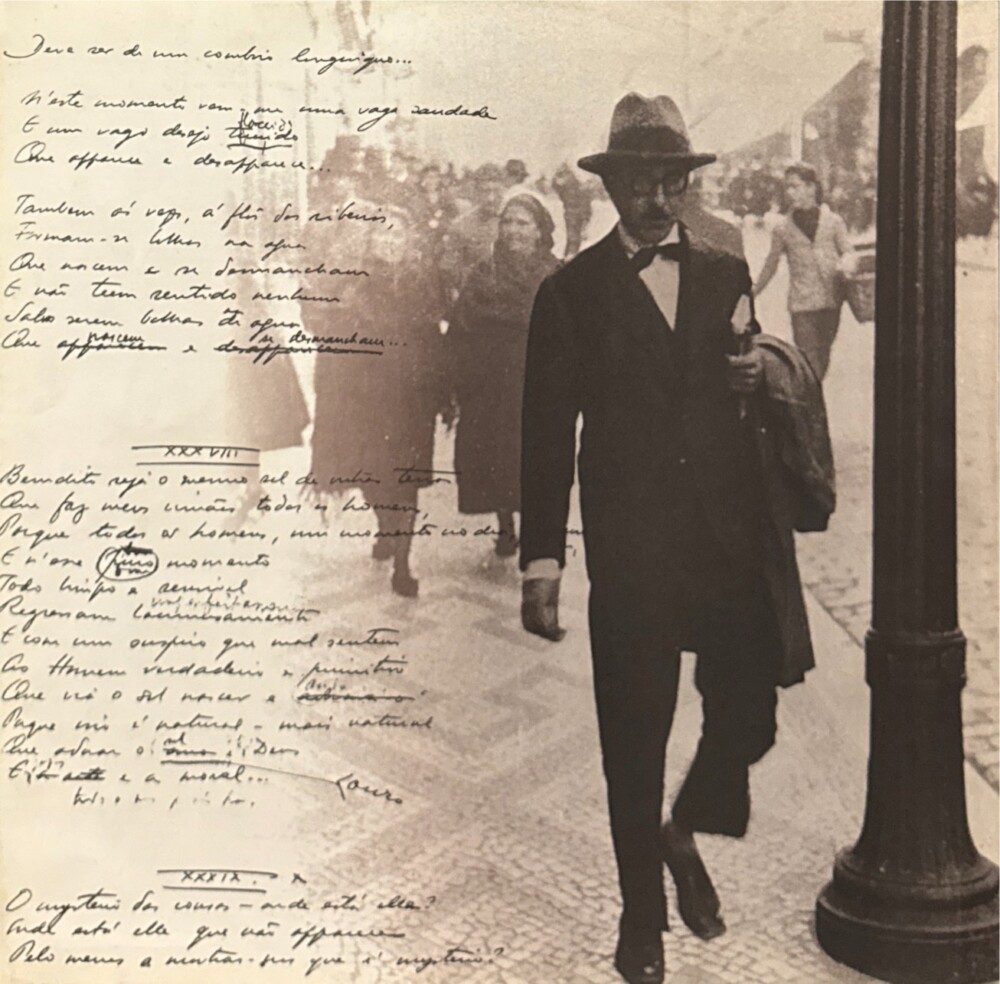 Deve ser de um combóio longinquo...
N'este momento vem-me uma vaga saudade
E um vago desejo placido
Que apparece e desapparece...
Tambem ás vezes, á flôr dos ribeiros,
Formam-se bolhas na agua
Que nascem e se desmancham
E não teem sentido nenhum
Salvo serem bolhas de agua
Que nascem e se desmancham...
XXXVIII
Bemdito seja o mesmo sol de outras terras
Que faz meus irmãos todos os homens,
Porque todos os homens, um momento no dia,
E n'esse puro momento
Todo limpo e sensivel
Regressam
E com um suspiro que mal sentem
Ao Homem verdadeiro e primitivo
Que via o sol nascer e ainda o
Porque isso é natural - mais natural
Que adorar o sol e Deus
E a arte e a moral...
XXXIX.
O mysterio das cousas - onde está elle?
Onde está elle que não apparece
Pelo menos a mostrar-nos que é mysterio?